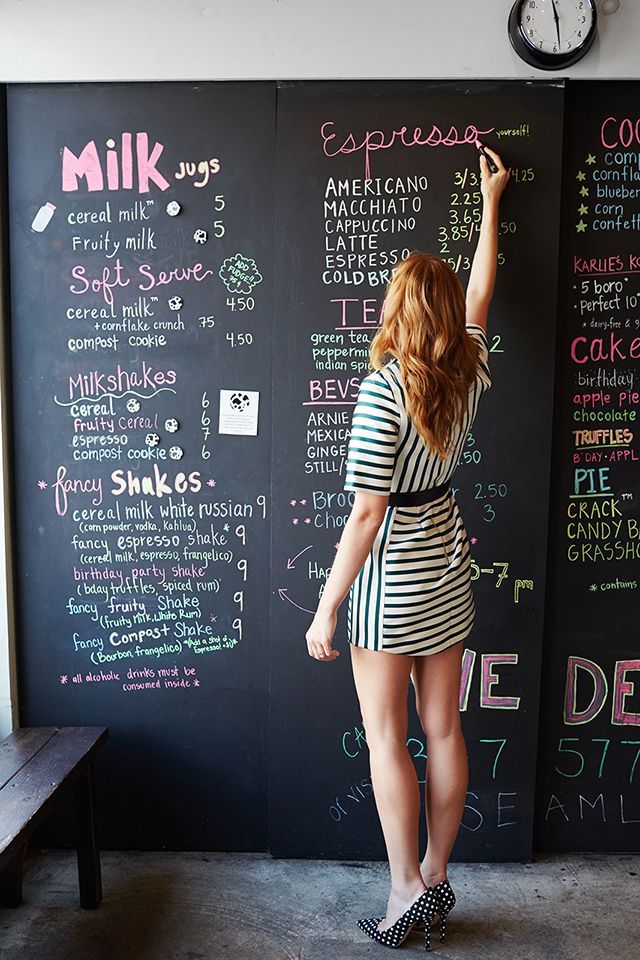 Milk Jugs
cereal milk™ 5
Fruity milk 5
Soft Serve
ADD FUDGE!! 75¢
cereal milk™ 4.50
+cornflake crunch 75
compost cookie 4.50
Milkshakes
cereal 6
fruity cereal 6
espresso 7
compost cookie 6
*fancy Shakes*
cereal milk white russian 9
(corn powder, vodka, Kahlua)
fancy espresso shake 9
(cereal milk, espresso, frangelico)
birthday party Shake 9
(bday truffles, spiced rum)
fancy fruity Shake 9
(fruity milk, white Rum)
fancy compost Shake 9
(Bourbon, frangelico)
*Add a shot of Espresso!
*all alcoholic drinks must be consumed inside*
Espresso yourself!
AMERICANO 4.25
MACCHIATO 2.25
CAPPUCCINO 3.65
LATTE 3.85
ESPRESSO 2
COLD BREW
TEA
green tea
peppermint
indian spice
BEVS
ARNIE
MEXICA
GINGER
STILL/S
2.50
3
5-7 pm
7
SEAMLE
*
comp
cornfla
blueber
corn
confett
KARLIE'S KO
5 boro
perfect 10
*dairy-free & g
cake
birthday
apple pie
chocolate
TRUFFLES
B'DAY·APPL
PIE
CRACK
CANDY BA
GRASSHO
*contains
DE
577